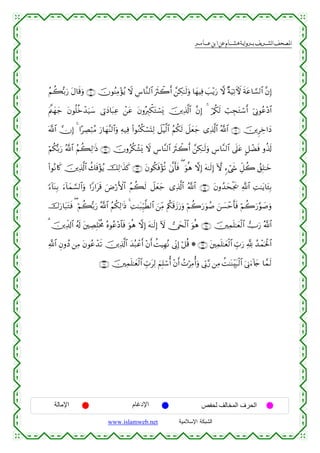 المصحف الشريف برواية هشام عن ابن عامر
إِنَّ السَّاعَةَ لَآتِيَةٌ لَا رَيْبَ فِيهَا وَلَٰكِنَّ أَكْثَرَ النَّاسِ لَا يُؤْمِنُونَ وَقَالَ رَبُّكُمُ
ادْعُونِي أَسْتَجِبْ لَكُمْ ۚ إِنَّ الَّذِينَ يَسْتَكْبِرُونَ عَنْ عِبَادَتِي سَيَدْخُلُونَ جَهَنَّمَ
دَاخِرِينَ اللَّهُ الَّذِي جَعَلَ لَكُمُ اللَّيْلَ لِتَسْكُنُوا فِيهِ وَالنَّهَارَ مُبْصِرًا ۚ إِنَّ اللَّهَ
لَذُو فَضْلٍ عَلَى النَّاسِ وَلَٰكِنَّ أَكْثَرَ النَّاسِ لَا يَشْكُرُونَ ذَٰلِكُمُ اللَّهُ رَبُّكُمْ
خَالِقُ كُلِّ شَيْءٍ لَا إِلَٰهَ إِلَّا هُوَ ۖ فَأَنَّىٰ تُؤْفَكُونَ كَذَٰلِكَ يُؤْفَكُ الَّذِينَ كَانُوا
بِآيَاتِ اللَّهِ يَجْحَدُونَ اللَّهُ الَّذِي جَعَلَ لَكُمُ الْأَرْضَ قَرَارًا وَالسَّمَاءَ بِنَاءً
وَصَوَّرَكُمْ فَأَحْسَنَ صُوَرَكُمْ وَرَزَقَكُمْ مِنَ الطَّيِّبَاتِ ۚ ذَٰلِكُمُ اللَّهُ رَبُّكُمْ ۖ فَتَبَارَكَ
اللَّهُ رَبُّ الْعَالَمِينَ هُوَ الْحَيُّ لَا إِلَٰهَ إِلَّا هُوَ فَادْعُوهُ مُخْلِصِينَ لَهُ الدِّينَ ۗ
الْحَمْدُ لِلَّهِ رَبِّ الْعَالَمِينَ ۞ قُلْ إِنِّي نُهِيتُ أَنْ أَعْبُدَ الَّذِينَ تَدْعُونَ مِنْ دُونِ اللَّهِ
لَمَّا جَاءَنِيَ الْبَيِّنَاتُ مِنْ رَبِّي وَأُمِرْتُ أَنْ أُسْلِمَ لِرَبِّ الْعَالَمِينَ
الحرف المخالف لحفص الإدغام الإمالة
الشبكة الإسلامية www.islamweb.net